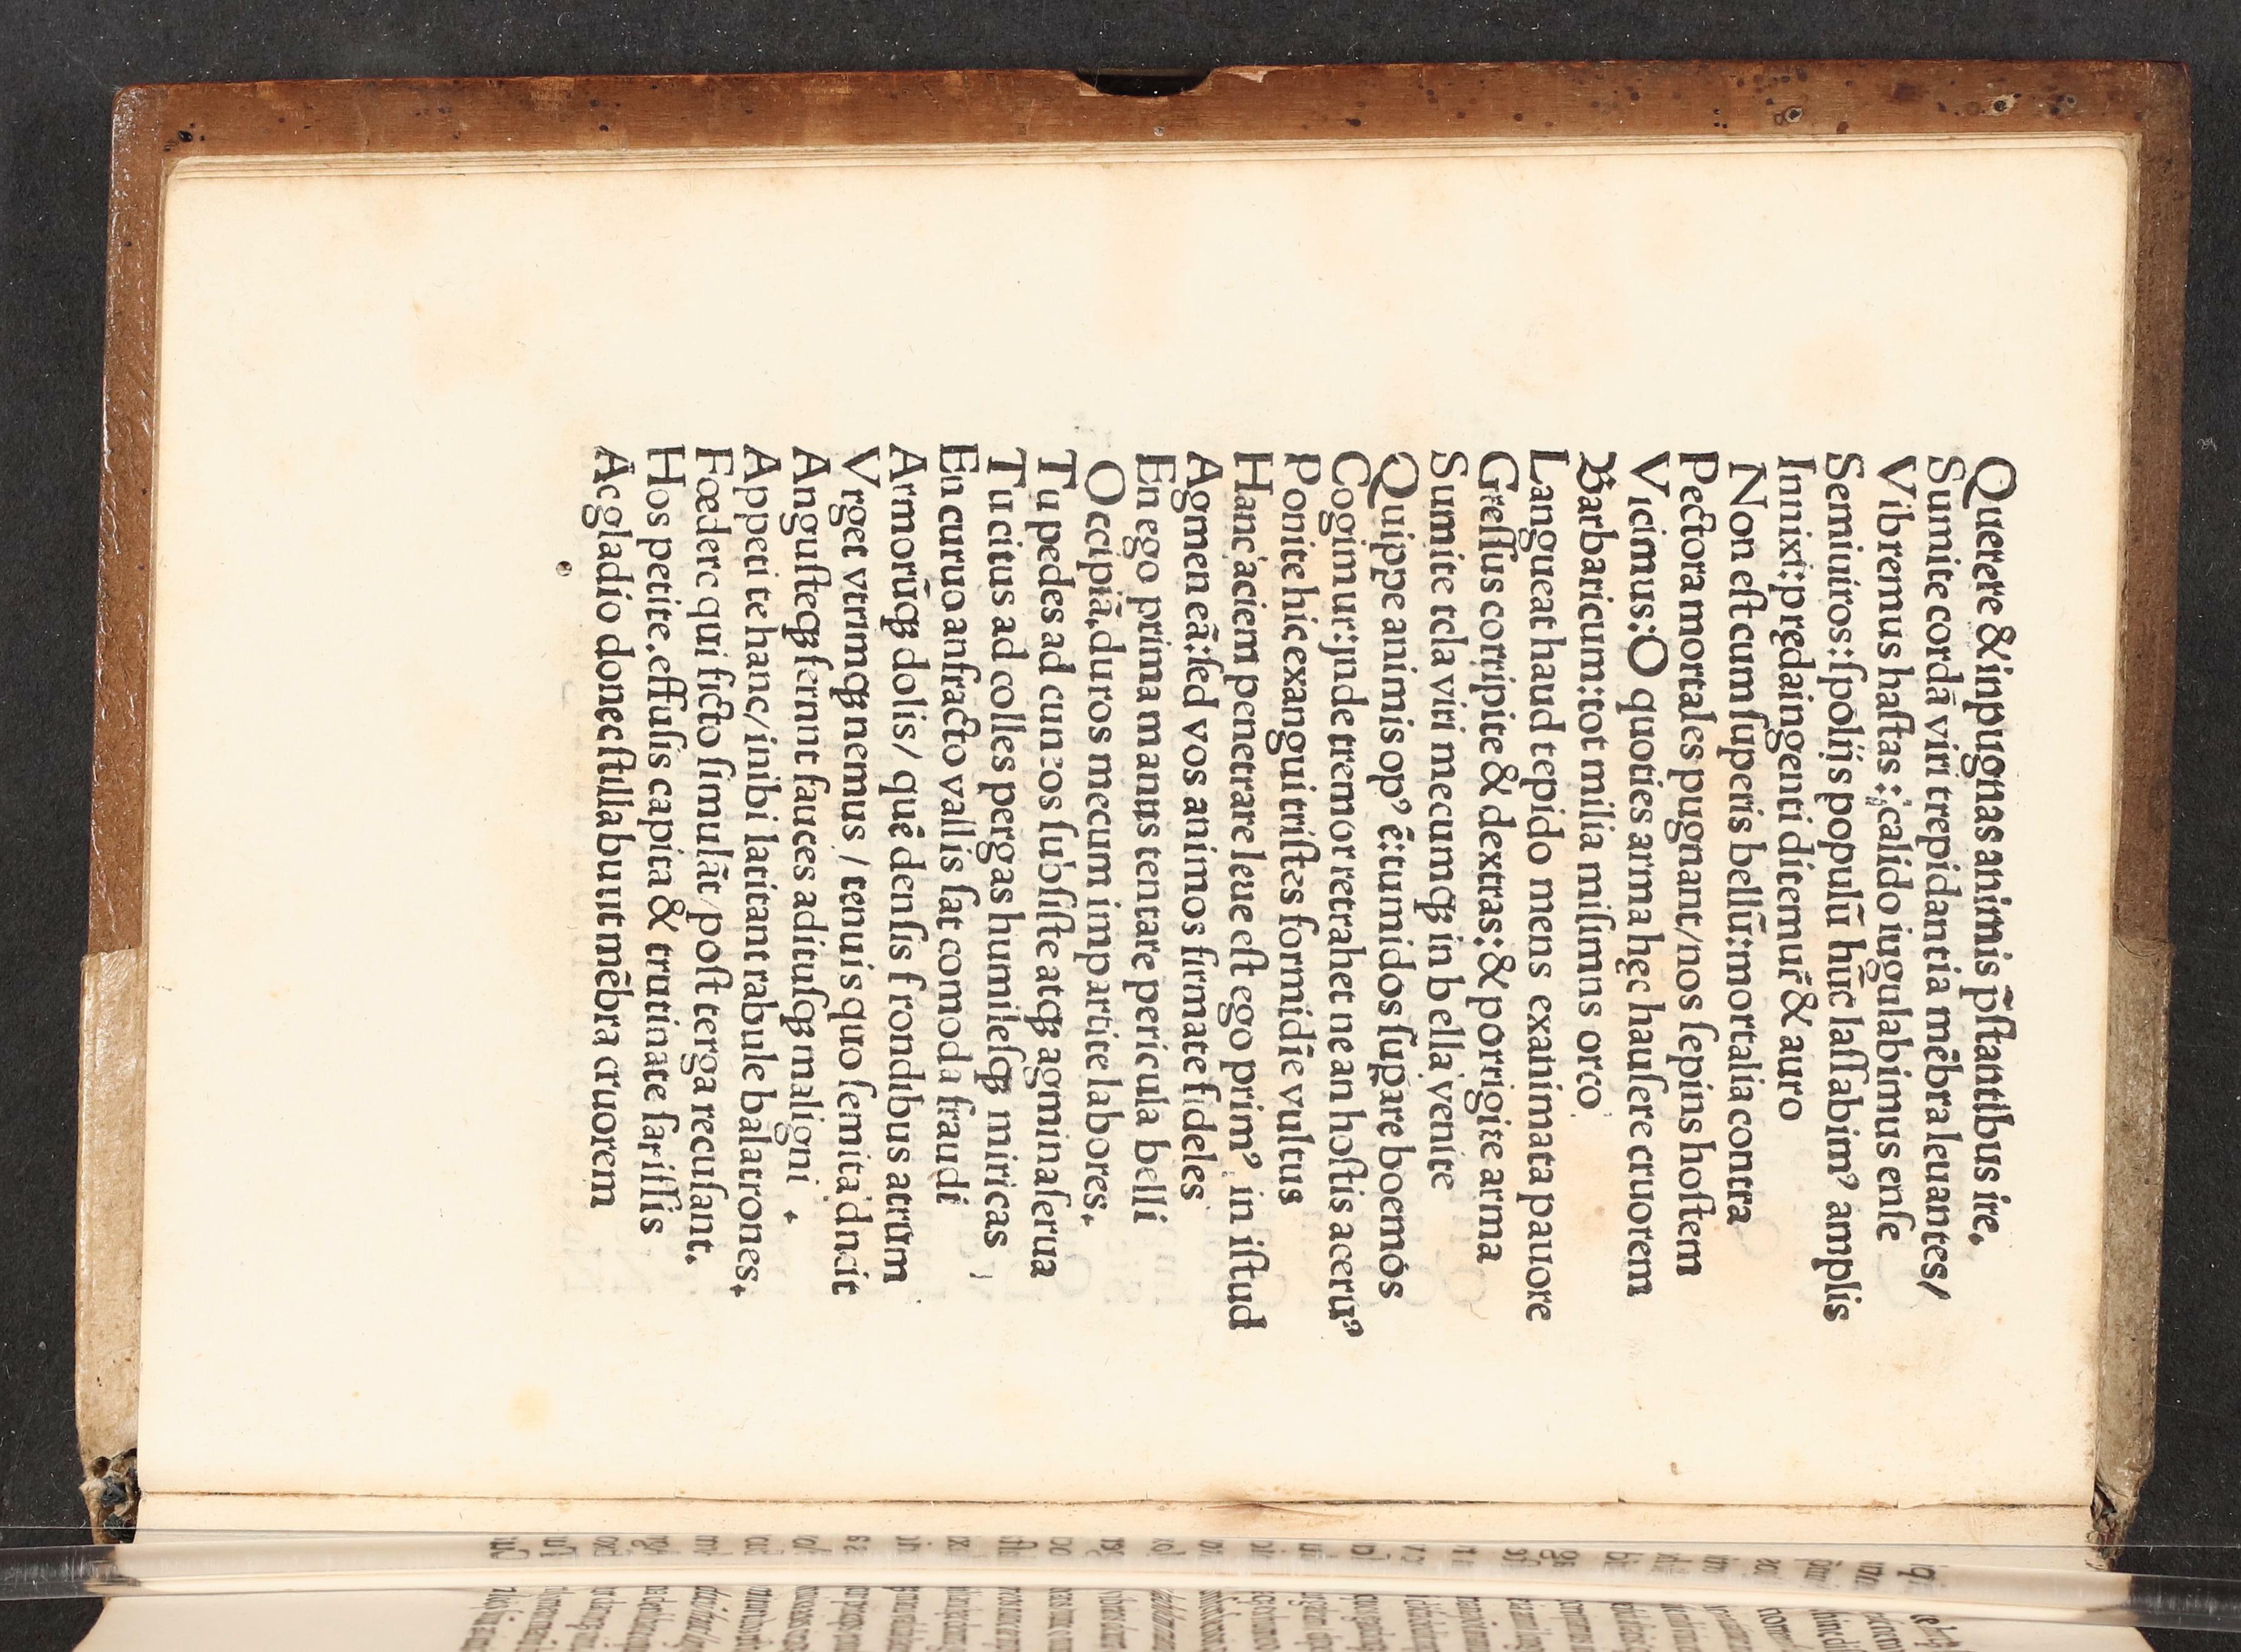 Querere & in pugnas animis p̄ſtantibus ire.
Sumite cordā viri trepidantia mēbra leuantes/
Vibremus haſtas: calido iugulabimus enſe
Semiuiros: ſpolijs populū hūc laſſabim⁹ amplis
Innixi: pręda ingenti ditemur̄ & auro
Non eſt cum ſuperis bellū: mortalia contra
Pectora mortales pugnant/nos ſepius hoſtem
Vicimus: O quoties arma hęc hauſere cruorem
Barbaricum: tot milia miſimus orco
Langueat haud tepido mens exanimata pauore
Greſſus corripite & dextras: & porrigite arma
Sumite tela viri mecumqꝫ in bella venite
Quippe animis op⁹ ē: tumidos ſuꝑare boemos
Cogimur: ynde tremor retrahet ne an hoſtis aceru⁹
Ponite hic exangui triſtes formidīe vultus
Hanc aciem penetrare leue eſt ego prim⁹ in iſtud
Agmen eā: ſed vos animos firmate fideles
En ego prima manus tentare pericula belli
Occipiā, duros mecum impartite labores.
Tu pedes ad cunctos ſubſiſte atqꝫ agmina ſerua
Tu citus ad colles pergas humileſqꝫ miricas
En curuo anfracto vallis ſat comoda fraudi
Armorūqꝫ dolis/ quē denſis frondibus atrum
Vrget vtrimqꝫ nemus / tenuis quo ſemita ducit
Anguſteqꝫ ferunt fauces adituſqꝫ maligni .
Appetite hanc/inibi latitant rabule balatrones.
Fœdere qui ficto ſimulāt/ poſt terga recuſant.
Hos petite. effuſis capita & trutinate ſariſſis
Ac gladio donec ſtillabunt mēbra cruorem